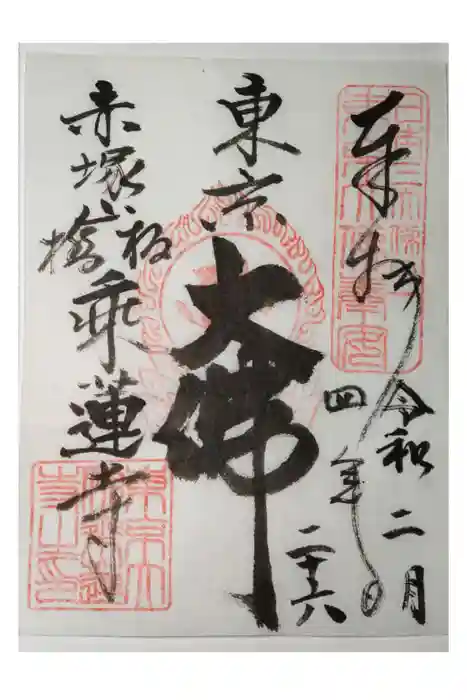 奉拝
令和
四年
二月
二十六
東京
大佛
赤塚
板橋
乗蓮寺